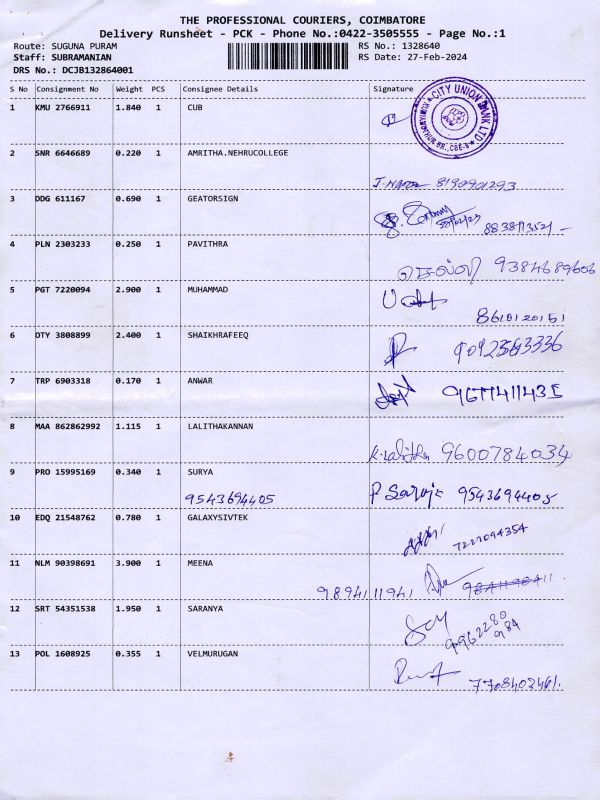 THE PROFESSIONAL COURIERS, COIMBATORE
Delivery Runsheet - PCK - Phone No.:0422-3505555 - Page No.:1
Route: SUGUNA PURAM RS No.: 1328640
Staff: SUBRAMANIAN RS Date: 27-Feb-2024
DRS No.: DCJB132864001
S No Consignment No Weight PCS Consignee Details Signature
1 KMU 2766911 1.840 1 CUB
CITY UNION BANK LTD
CBE-8
2 SNR 6646689 0.220 1 AMRITHA.NEHRUCOLLEGE
8190901293
3 DDG 611167 0.690 1 GEATORSIGN
4 PLN 2303233 0.250 1 PAVITHRA
செல்வி 9384689606
5 PGT 7220094 2.900 1 MUHAMMAD
8610120151
6 DTY 3808899 2.400 1 SHAIKHRAFEEQ
7 TRP 6903318 0.170 1 ANWAR
8 MAA 862862992 1.115 1 LALITHAKANNAN
K. Lalitha 9600784034
9 PRO 15995169 0.340 1 SURYA
9543694405 P Saroja 9543694405
10 EDQ 21548762 0.780 1 GALAXYSIVTEK
11 NLM 90398691 3.900 1 MEENA
9894111941
12 SRT 54351538 1.950 1 SARANYA
9962280
984
13 POL 1608925 0.355 1 VELMURUGAN
7708403461.